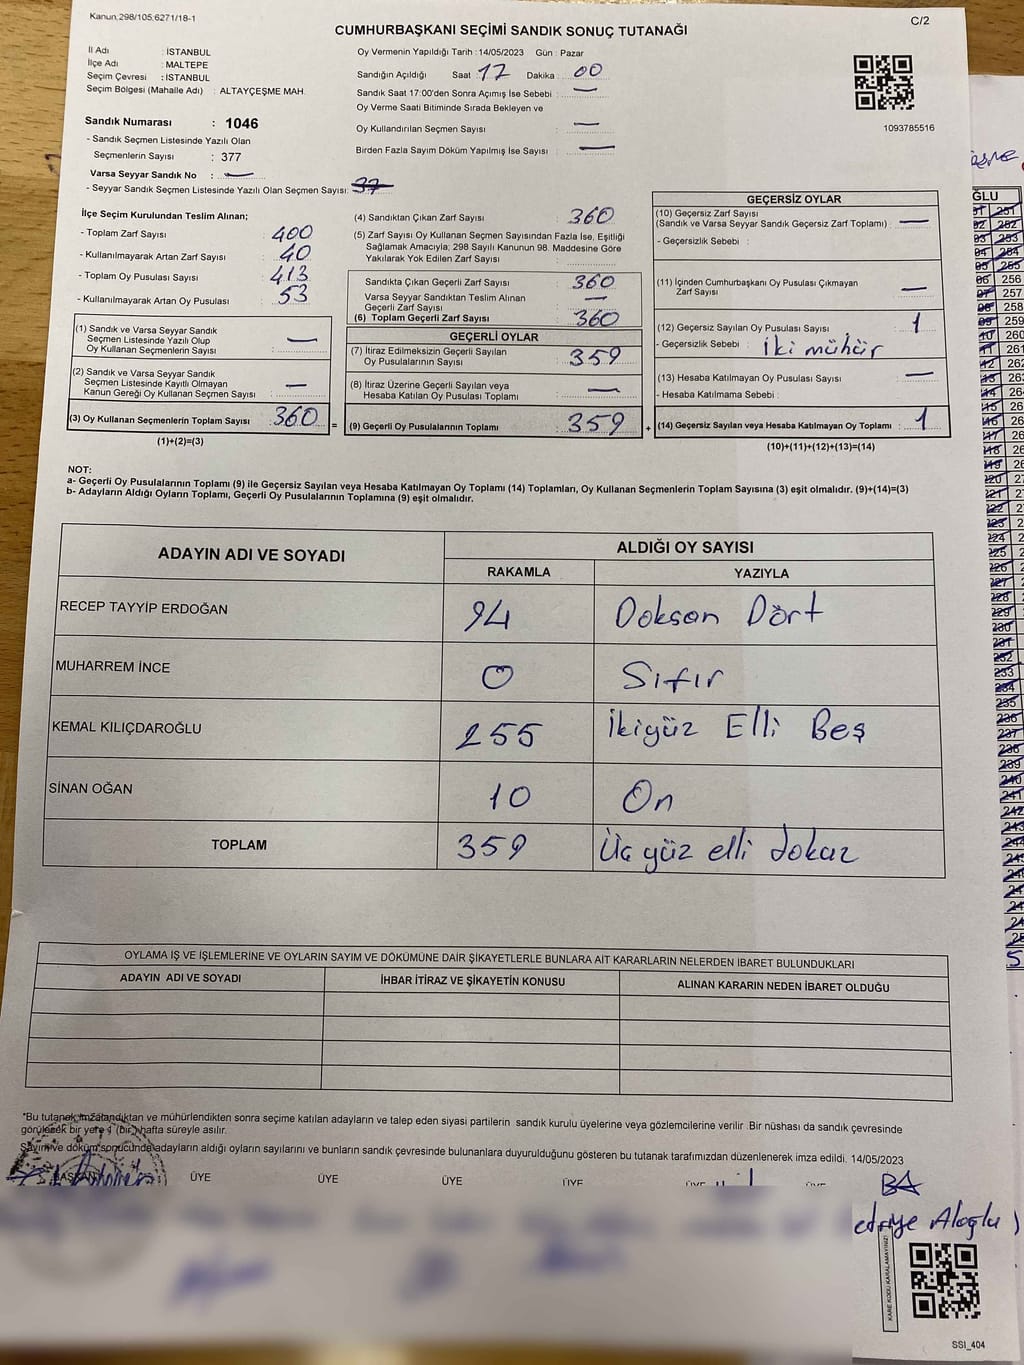 Kanun;298/105;6271/18-1
C/2
CUMHURBAŞKANI SEÇİMİ SANDIK SONUÇ TUTANAĞI
İl Adı : İSTANBUL
İlçe Adı : MALTEPE
Seçim Çevresi : İSTANBUL
Seçim Bölgesi (Mahalle Adı) : ALTAYÇEŞME MAH.
Sandık Numarası : 1046
- Sandık Seçmen Listesinde Yazılı Olan
Seçmenlerin Sayısı : 377
Varsa Seyyar Sandık No : —
- Seyyar Sandık Seçmen Listesinde Yazılı Olan Seçmen Sayısı:
Oy Vermenin Yapıldığı Tarih : 14/05/2023 Gün : Pazar
Sandığın Açıldığı Saat : 17 Dakika : 00
Sandık Saat 17:00'den Sonra Açımış İse Sebebi : —
Oy Verme Saati Bitiminde Sırada Bekleyen ve
Oy Kullandırılan Seçmen Sayısı : —
Birden Fazla Sayım Döküm Yapılmış İse Sayısı : —
1093785516
İlçe Seçim Kurulundan Teslim Alınan;
- Toplam Zarf Sayısı : 400
- Kullanılmayarak Artan Zarf Sayısı : 40
- Toplam Oy Pusulası Sayısı : 413
- Kullanılmayarak Artan Oy Pusulası : 53
(1) Sandık ve Varsa Seyyar Sandık
Seçmen Listesinde Yazılı Olup
Oy Kullanan Seçmenlerin Sayısı : —
(2) Sandık ve Varsa Seyyar Sandık
Seçmen Listesinde Kayıtlı Olmayan
Kanun Gereği Oy Kullanan Seçmen Sayısı : —
(3) Oy Kullanan Seçmenlerin Toplam Sayısı : 360
(1)+(2)=(3)
=
(4) Sandıktan Çıkan Zarf Sayısı : 360
(5) Zarf Sayısı Oy Kullanan Seçmen Sayısından Fazla İse, Eşitliği
Sağlamak Amacıyla; 298 Sayılı Kanunun 98. Maddesine Göre
Yakılarak Yok Edilen Zarf Sayısı :
Sandıkta Çıkan Geçerli Zarf Sayısı : 360
Varsa Seyyar Sandıktan Teslim Alınan
Geçerli Zarf Sayısı : —
(6) Toplam Geçerli Zarf Sayısı : 360
GEÇERLİ OYLAR
(7) İtiraz Edilmeksizin Geçerli Sayılan
Oy Pusulalarının Sayısı : 359
(8) İtiraz Üzerine Geçerli Sayılan veya
Hesaba Katılan Oy Pusulası Toplamı : —
(9) Geçerli Oy Pusulalarının Toplamı : 359
+
GEÇERSİZ OYLAR
(10) Geçersiz Zarf Sayısı
(Sandık ve Varsa Seyyar Sandık Geçersiz Zarf Toplamı) : —
- Geçersizlik Sebebi :
(11) İçinden Cumhurbaşkanı Oy Pusulası Çıkmayan
Zarf Sayısı : —
(12) Geçersiz Sayılan Oy Pusulası Sayısı : 1
- Geçersizlik Sebebi : İki mühür
(13) Hesaba Katılmayan Oy Pusulası Sayısı : —
- Hesaba Katılmama Sebebi :
(14) Geçersiz Sayılan veya Hesaba Katılmayan Oy Toplamı : 1
(10)+(11)+(12)+(13)=(14)
NOT:
a- Geçerli Oy Pusulalarının Toplamı (9) ile Geçersiz Sayılan veya Hesaba Katılmayan Oy Toplamı (14) Toplamları, Oy Kullanan Seçmenlerin Toplam Sayısına (3) eşit olmalıdır. (9)+(14)=(3)
b- Adayların Aldığı Oyların Toplamı, Geçerli Oy Pusulalarının Toplamına (9) eşit olmalıdır.
ADAYIN ADI VE SOYADI
ALDIĞI OY SAYISI
RAKAMLA YAZIYLA
RECEP TAYYİP ERDOĞAN 94 Doksan Dört
MUHARREM İNCE 0 Sıfır
KEMAL KILIÇDAROĞLU 255 İkiyüz Elli Beş
SİNAN OĞAN 10 On
TOPLAM 359 Üç yüz elli dokuz
OYLAMA İŞ VE İŞLEMLERİNE VE OYLARIN SAYIM VE DÖKÜMÜNE DAİR ŞİKAYETLERLE BUNLARA AİT KARARLARIN NELERDEN İBARET BULUNDUKLARI
ADAYIN ADI VE SOYADI İHBAR İTİRAZ VE ŞİKAYETİN KONUSU ALINAN KARARIN NEDEN İBARET OLDUĞU
*Bu tutanak imzalandıktan ve mühürlendikten sonra seçime katılan adayların ve talep eden siyasi partilerin sandık kurulu üyelerine veya gözlemcilerine verilir. Bir nüshası da sandık çevresinde
görülecek bir yere 1 (bir) hafta süreyle asılır.
Sayım ve döküm sonucunda adayların aldığı oyların sayılarını ve bunların sandık çevresinde bulunanlara duyurulduğunu gösteren bu tutanak tarafımızdan düzenlenerek imza edildi. 14/05/2023
BAŞKAN ÜYE ÜYE ÜYE ÜYE ÜYE ÜYE
edriye Aloğlu )
KARE KODU KARALAMAYINIZ!
SSI_404